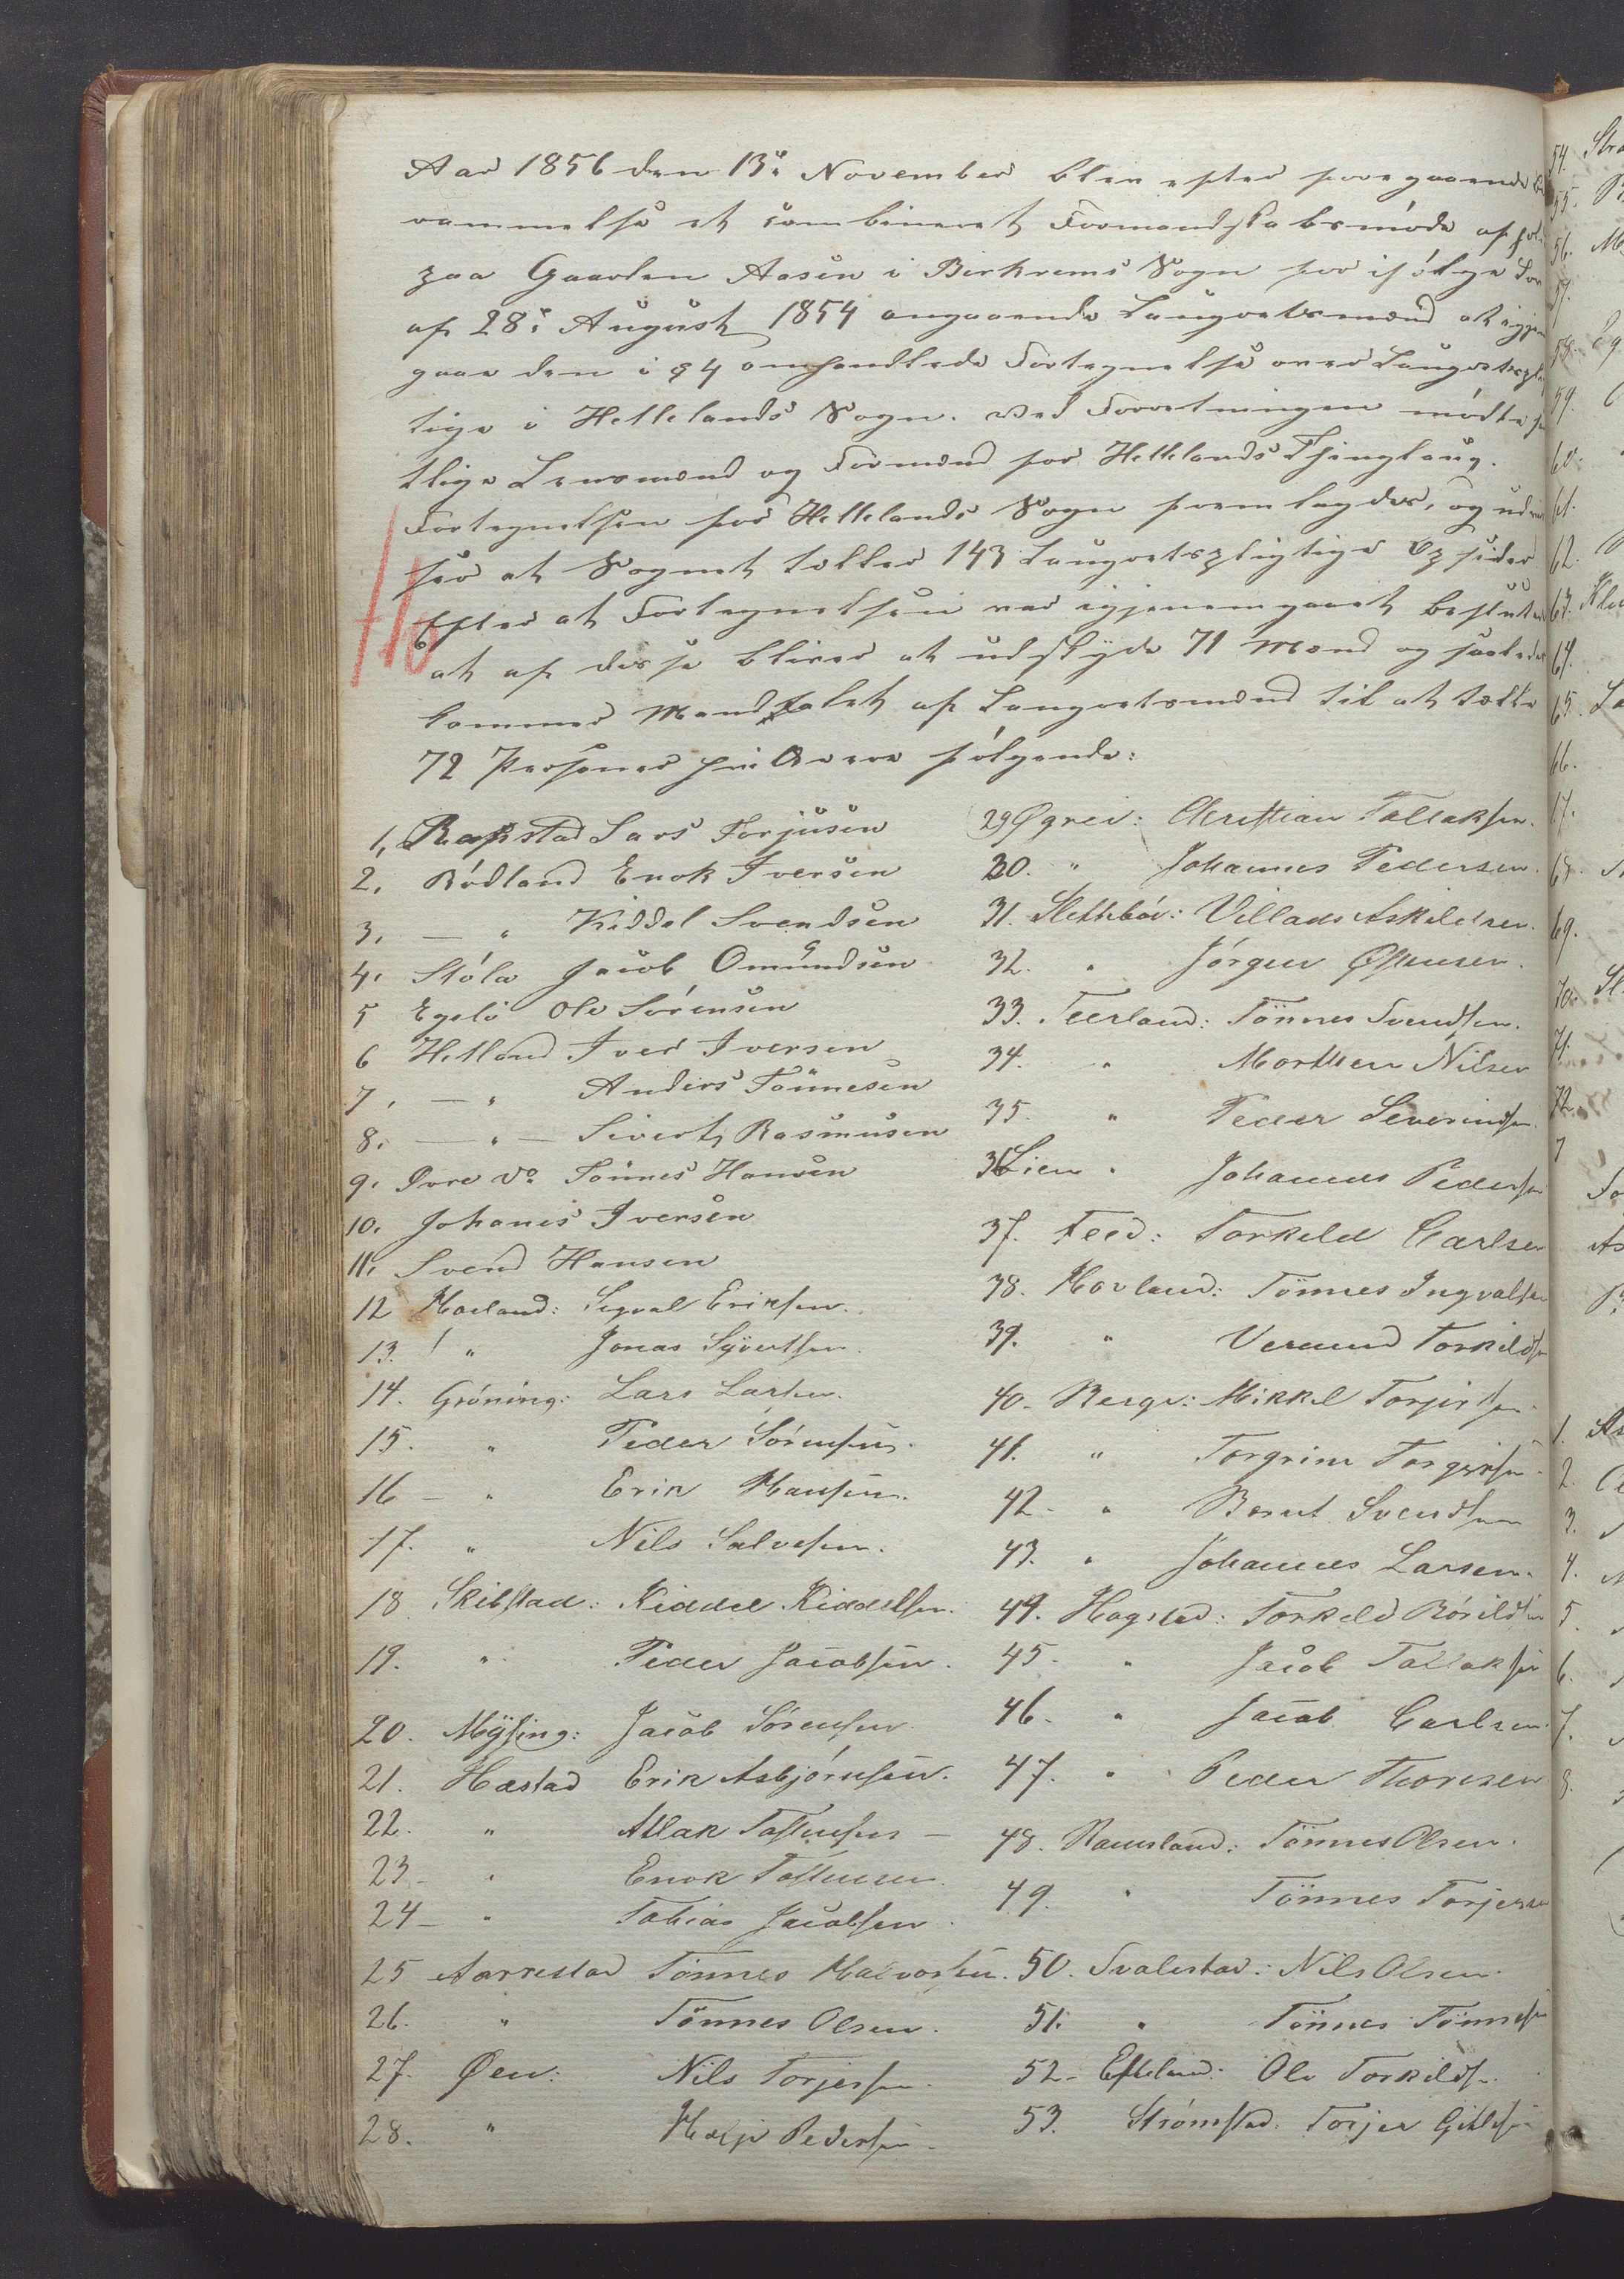 Aar 1856 den 13de November blev efter foregaaende Be
rammelse et combineret Formandskabsmöde afhol
paa Gaarden Aasen i Birkrems Sogn for ifölge Lov
af 28de August 1854 angaaende Laugretsmænd at igjen
gaae den i § 4 omhandlede Fortegnelse over Laugretsplig
tige i Hellelands Sogn. Ved Forretningen mödte sam
tlige Lensmænd og Formænd for Hellelands Thinglaug.
Fortegnelsen for Hellelands Sogn fremlagdes, og udvi
ser at Sognet tæller 143 Laugretspligtige Opsider
Efter at Fortegnelsen var igjennemgaaet besluttes
at af disse bliver at udskyde 71 Mænd og saaledes
kommer Mandtalet af Laugretsmænd til at tælle
72 Personer hvilke ere fölgende:
1, Rapstad Lars Torjusen
2, Rödland Enok Iversen
3, — " Kiddel Svendsen
4, Stöle Jacob Omundsen
5 Egelö Ole Sörensen
6 Hetland Iver Iversen
7, — " Anders Tönnesen
8, — " — Sivert Rasmusen
9, Øvre do Tönnes Hansen
10, Johanis Iversen
11, Svend Hansen
12 Havland: Sigval Eriksen.
13. " Jonas Syvertsen.
14. Gröning: Lars Larsen.
15. " Peder Sörensen.
16 — " Erik Hansen.
17. " Nils Salvesen.
18 Skibstad: Kiddel Kiddelsen.
19. " Peder Jacobsen.
20. Mysing: Jacob Sörensen
21. Hæstad Erik Asbjörnsen.
22. " Atlak Tostensen —
23 — " Enok Tostensen.
24 — " Tobias Jacobsen.
25 Aarrestad Tönnes Halvorsen.
26. " Tönnes Olsen.
27. Øen: Nils Torjersen.
28. " Helje Pedersen.
29 Øgrei: Christian Tallaksen.
30. " Johannes Pedersen.
31. Slettebö: Villads Askildsen.
32. " Jörgen Østensen.
33. Teerland: Tönnes Svendsen.
34. " Morthen Nilsen
35. " Peder Severindsen.
36 Lien " Johannes Pedersen
37. Feed: Torkeld Carlsen
38. Hovland: Tönnes Ingvalsen
39. " Vermund Torkilds
40. Berge: Mikkel Torjersen.
41. " Torgrim Torgersen.
42 — " Berent Svendsen
43. " Johannes Larsen.
44. Hagstad: Torkeld Börildsen
45. " Jacob Tallaksen
46 — " Jacob Carlsen.
47. " Peder Thorsen
48. Ramsland: Tönnes Olsen.
49. " Tönnes Torjersen
50. Svalestad: Nils Olsen.
51. " Tönnes Tönnesen
52 — Efteland: Ole Torkilds.
53. Strömstad: Torjer Gitlesen